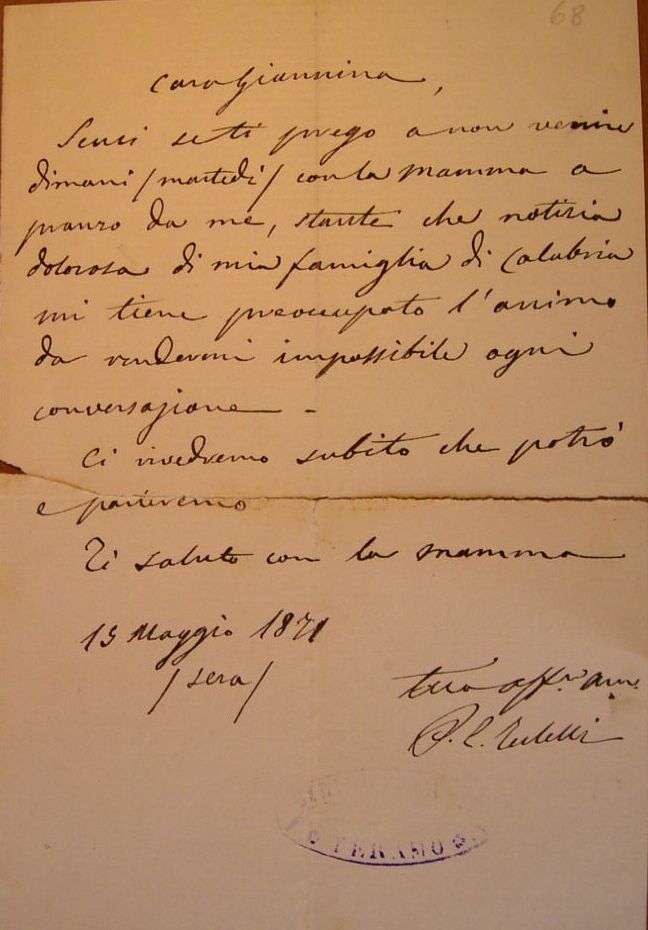 68
Cara Giannina,
Scusi se ti prego a non venire
dimani /martedì/ con la mamma a
pranzo da me, stante che notizia
dolorosa di mia famiglia di Calabria
mi tiene preoccupato l'animo
da rendermi impossibile ogni
conversazione -
Ci rivedremo subito che potrò
e
Ti saluto con la mamma
15 Maggio 1871
/sera/
tuo aff.
TERAMO